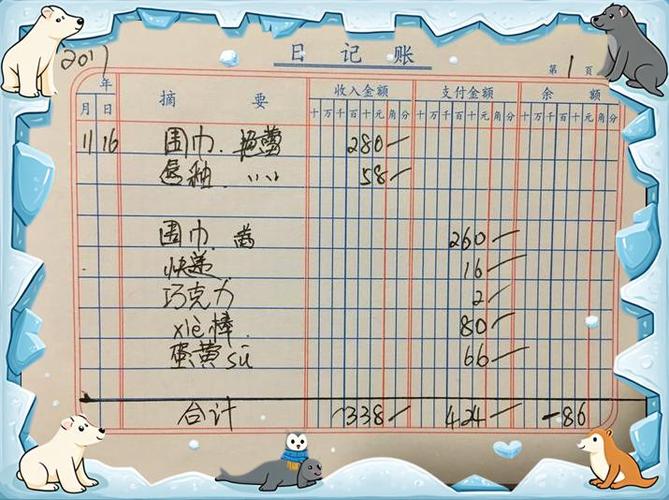 日记账
2017 年 第 1 页
月 日 摘要 收入金额 支付金额 余额
十万千百十元角分 十万千百十元角分 十万千百十元角分
11 16 围巾. 280—
58—
围巾. 260—
快递 16—
巧克力 2—
xiè棒 80—
蛋黄sū 66—
合计 338— 424— -86